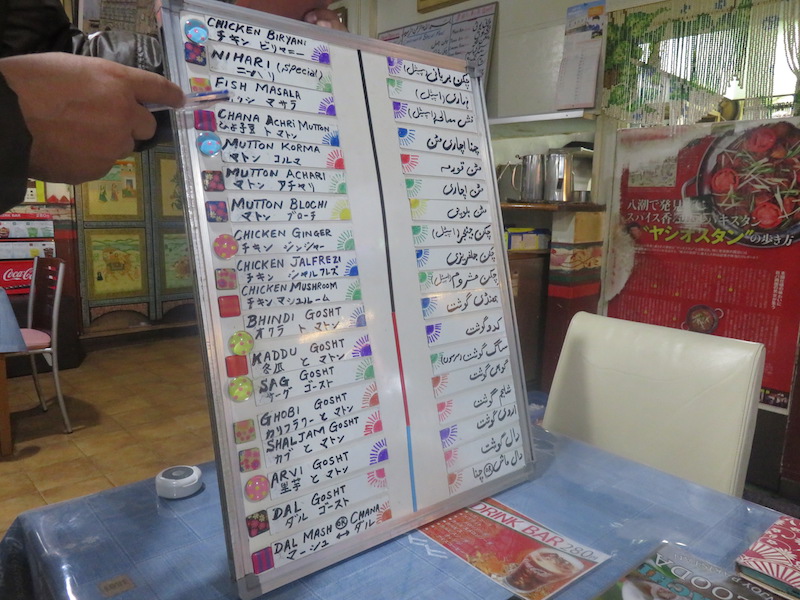 CHICKEN BIRYANI
チキン ビリヤニー
NIHARI (Special)
ニハリ
FISH MASALA
マサラ
CHANA ACHRI MUTTON
ひよ子豆 トマトン
MUTTON KORMA
マトン コルマ
MUTTON ACHARI
マトン アチャリ
MUTTON BLOCHI
マトン ブローチ
CHICKEN GINGER
チキン ジンジャー
CHICKEN JALFREZI
チキン ジャルフレズ
CHICKEN MUSHROOM
チキン マシュルーム
BHINDI GOSHT
オクラ ト マトン
KADDU GOSHT
冬瓜 と マトン
SAG GOSHT
サーグ ゴースト
GHOBI GOSHT
カリフラワー と マトン
SHALJAM GOSHT
カブ と マトン
ARVI GOSHT
里芋 と マトン
DAL GOSHT
ダル ゴースト
DAL MASH OR CHANA
マーシュ ↔ ダル
چکن بریانی (اسپیشل)
نہاری (اسپیشل)
فش مصالحہ (اسپیشل)
چنا اچاری مٹن
مٹن قورمہ
مٹن اچاری
مٹن بلوچی
چکن جنجر (اسپیشل)
چکن جلفریزی
چکن مشروم (اسپیشل)
بھنڈی گوشت
کدو گوشت
ساگ گوشت (سرسوں)
گوبھی گوشت
شلجم گوشت
اروی گوشت
دال گوشت
دال ماش OR چنا
八潮で発見
スパイス香る パキスタン
"ヤシオスタン"の歩き方
Coca-Cola
DRINK BAR
280